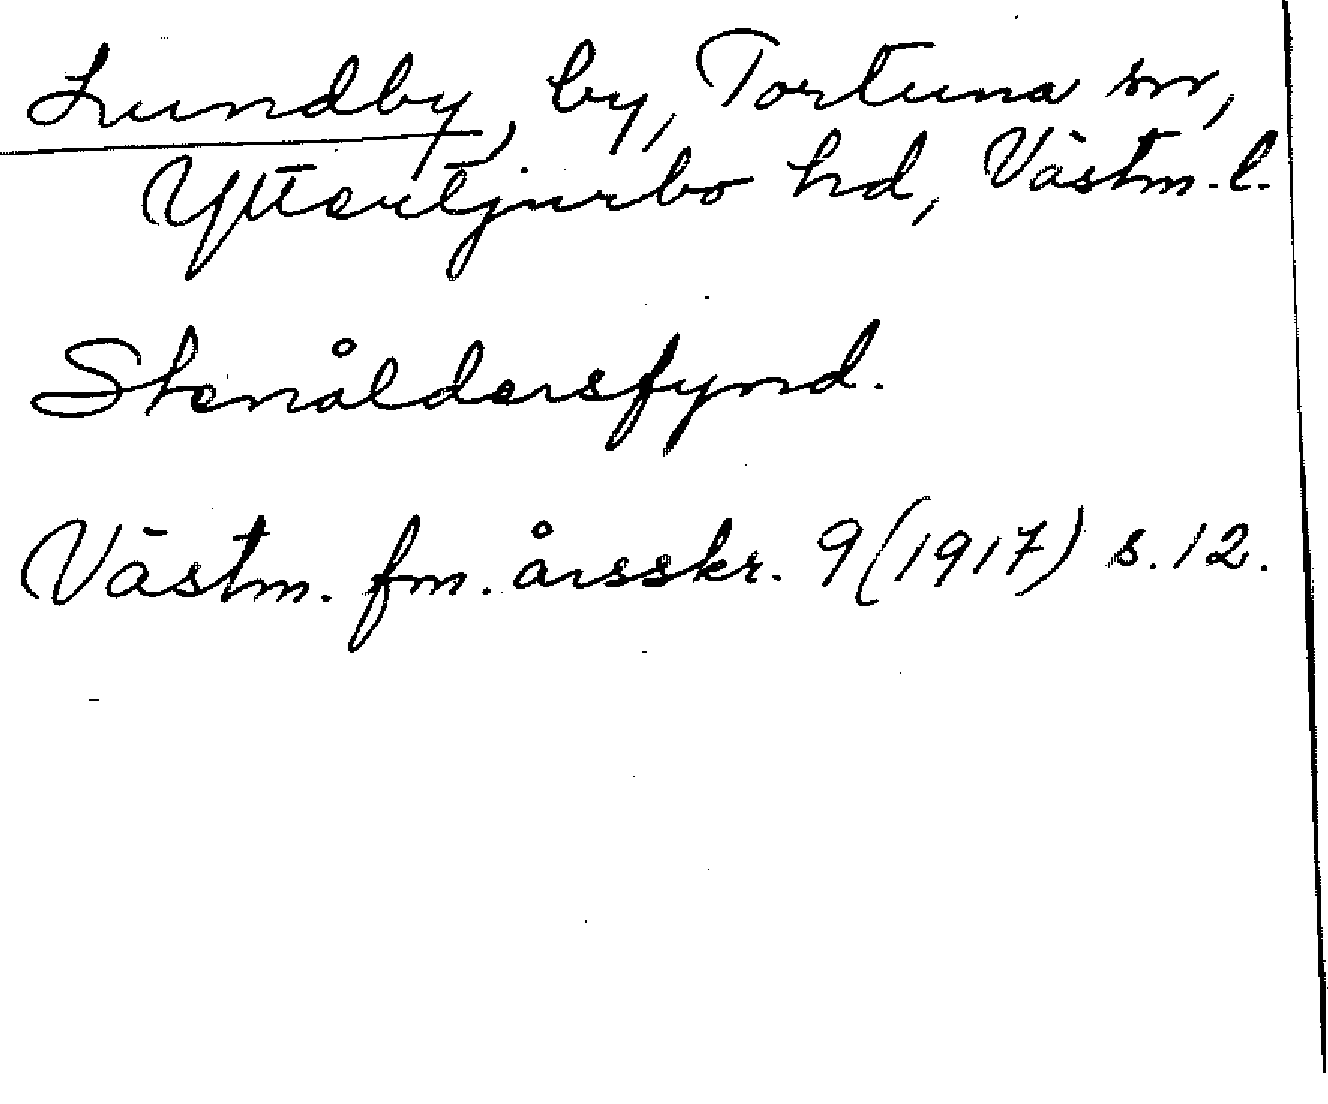 Lundby, by, Tortuna sn,
Yttertjurbo hd, Västm. l.
Stenåldersfynd.
Västm. fm. årsskr. 9 (1917) s. 12.